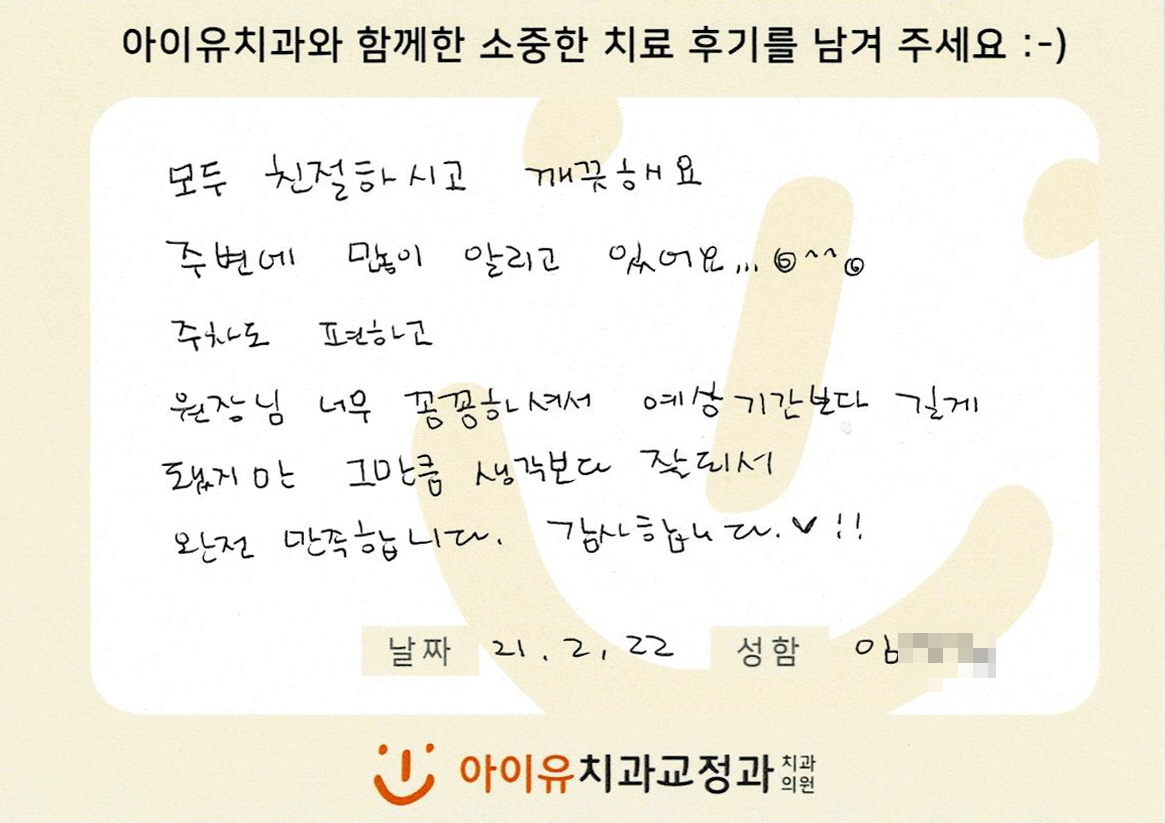 아이유치과와 함께한 소중한 치료 후기를 남겨 주세요 :-)
모두 친절하시고 깨끗해요
주변에 많이 알리고 있어요... ◎^^◎
주차도 편하고
원장님 너무 꼼꼼하셔서 예상기간보다 길게
됐지만 그만큼 생각보다 잘되서
완전 만족합니다. 감사합니다.♥!!
날짜 21. 2. 22 성함 임
아이유치과교정과 치과의원